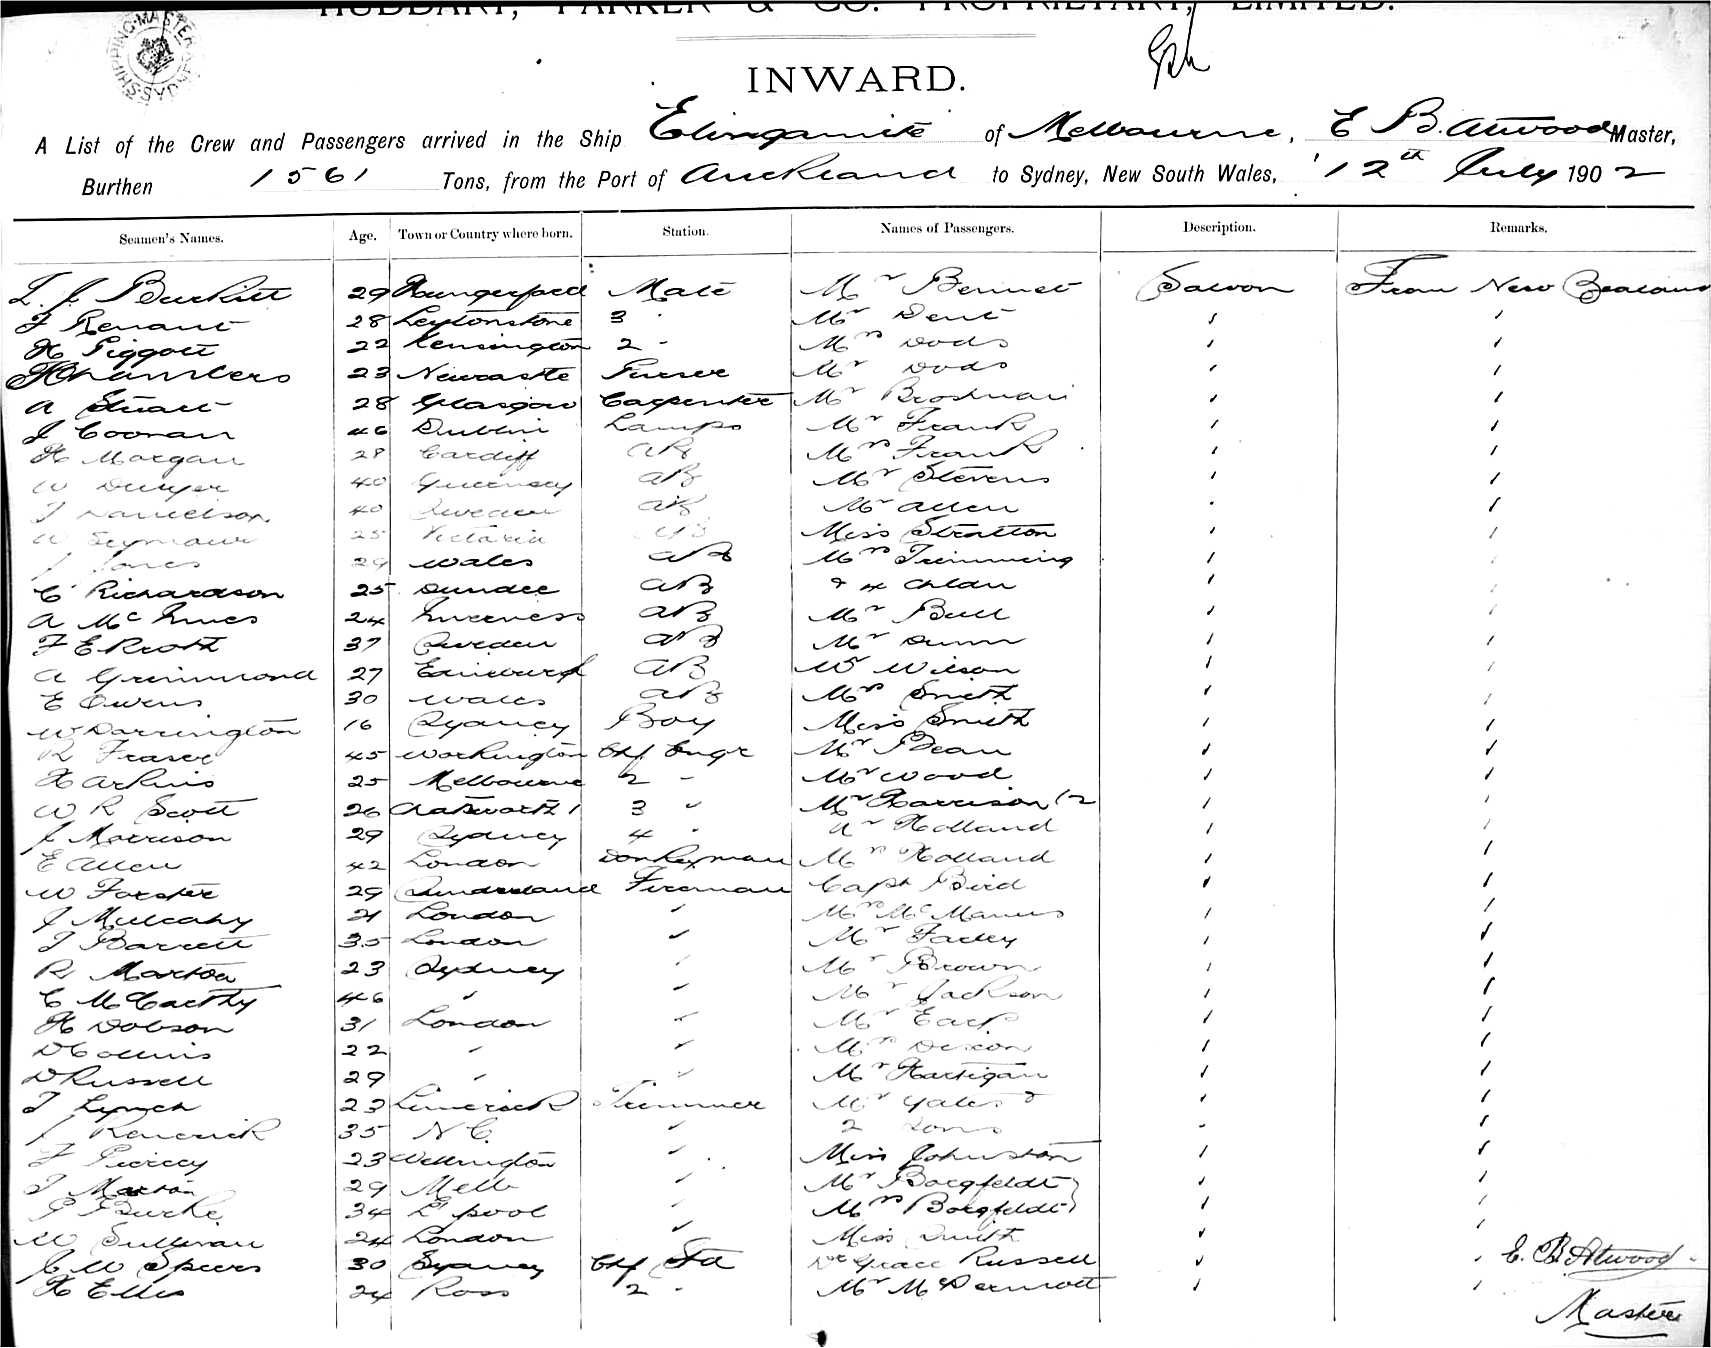 HUDDART, PARKER & CO. PROPRIETARY, LIMITED.
SHIPPING MASTER SYDNEY
INWARD.
A List of the Crew and Passengers arrived in the Ship Elingamite of Melbourne, E B. Atwood Master,
Burthen 1561 Tons, from the Port of Auckland to Sydney, New South Wales, 12th July 1902
Seamen's Names. Age. Town or Country where born. Station. Names of Passengers. Description. Remarks.
L. J. Burkitt 29 Hungerford Mate Mr Bennet Saloon From New Zealand
F Renaut 28 Leytonstone 3 " Mr Dent " "
H Piggott 22 Kensington 2 " Mrs Dods " "
H Chambers 23 Newcastle Purser Mr Dods " "
A Stuart 28 Glasgow Carpenter Mr " "
J Coonan 46 Dublin Lamps Mr Frank " "
H Morgan 28 Cardiff AB Mrs Frank " "
W Dwyer 40 Guernsey AB Mr Stevens " "
J Danielson 40 Sweden AB Mr Allen " "
W Seymour 25 Victoria AB Miss Stratton " "
J Jones 29 Wales AB Mrs Trimming " "
C Richardson 25 Dundee AB & 4 Childn " "
A McInnes 24 Inverness AB Mr Bull " "
F E Kroth 37 Sweden AB Mr Dunn " "
A Grimmond 27 Edinburgh AB Mr Wilson " "
E Owens 30 Wales AB Mrs Smith " "
W Darrington 16 Sydney Boy Miss Smith " "
R Fraser 45 Workington Chf Engr Mr Bean " "
H Arkins 25 Melbourne 2 " Mr Wood " "
W R Scott 26 3 " Mr Harrison (2 " "
J Morrison 29 Sydney 4 " Mr Holland " "
E Allen 42 London Donkeyman Mrs Holland " "
W Forster 29 Sunderland Fireman Capt Bird " "
J Mulcahy 21 London " Mrs McManus " "
J Barrett 35 London " Mr Facey " "
R Marton 23 Sydney " Mr Brown " "
C McCarthy 46 " " Mr Jackson " "
H Dobson 31 London " Mr Earp " "
D Collins 22 " " Mrs Dixon " "
D Russell 29 " " Mr Hartigan " "
T Lynch 23 Limerick Trimmer Mr Yates & " "
J Kenerick 35 N.C. " 2 Sons " "
F Piercey 23 Wellington " Miss Johnston " "
T Marton 29 Melb " Mr Borgfeldt " "
P Burke 34 L'pool " Mrs Borgfeldt " "
M Sullivan 24 London " Miss Smith " "
J W Speers 30 Sydney Chf Std Dr Grace Russell " " E. B. Atwood
H Ellis 24 Ross 2 " Mr McDermott " " Master